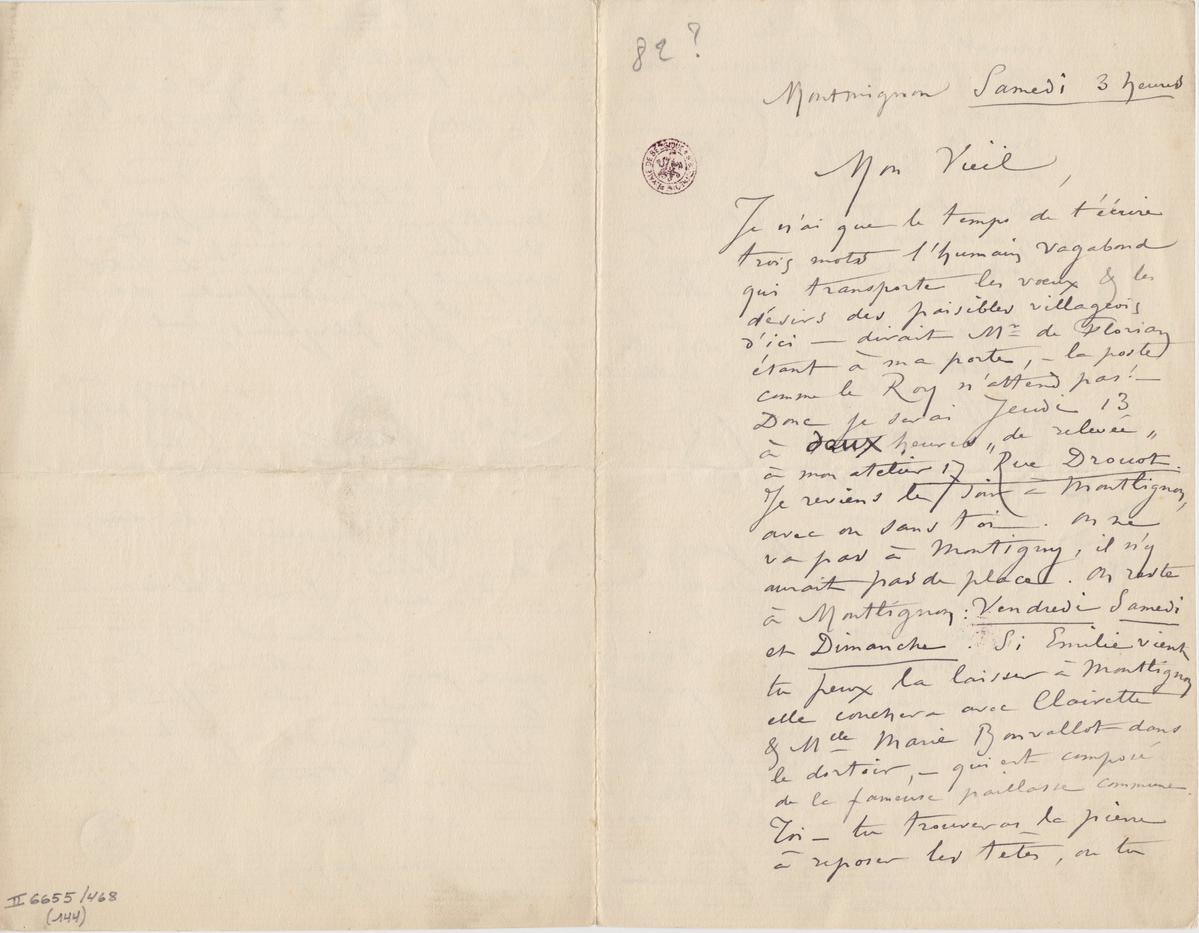 82 ?
Montmignon Samedi 3 heures
Mon Vieil,
Je n'ai que le temps de t'écrire
trois mots l'humain vagabond
qui transporte les vœux & les
désirs des paisibles villageois
d'ici — dirait Mr de Florian
étant à ma porte, — la poste
comme le Roy n'attend pas! —
Donc je serai Jeudi 13
à deux heures „de relevée„
à mon atelier 17 Rue Drouot.
Je reviens le soir à Montlignon,
avec ou sans toi. On ne
va pas à Montigny, il n'y
aurait pas de place. On reste
à Montlignon : Vendredi Samedi
et Dimanche. Si Emilie vient
tu peux la laisser à Montlignon
elle couchera avec Clairette
& Melle Marie Bonvallot dans
le dortoir, — qui est composé
de la fameuse paillasse commune.
Toi — tu trouveras la pierre
à reposer les têtes, ou tu
II 6655/468
(144)